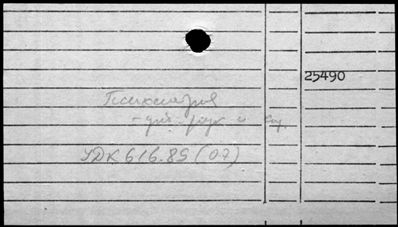 25490
Психиатрия
- уч. рук. и
УДК 616.89 (07)